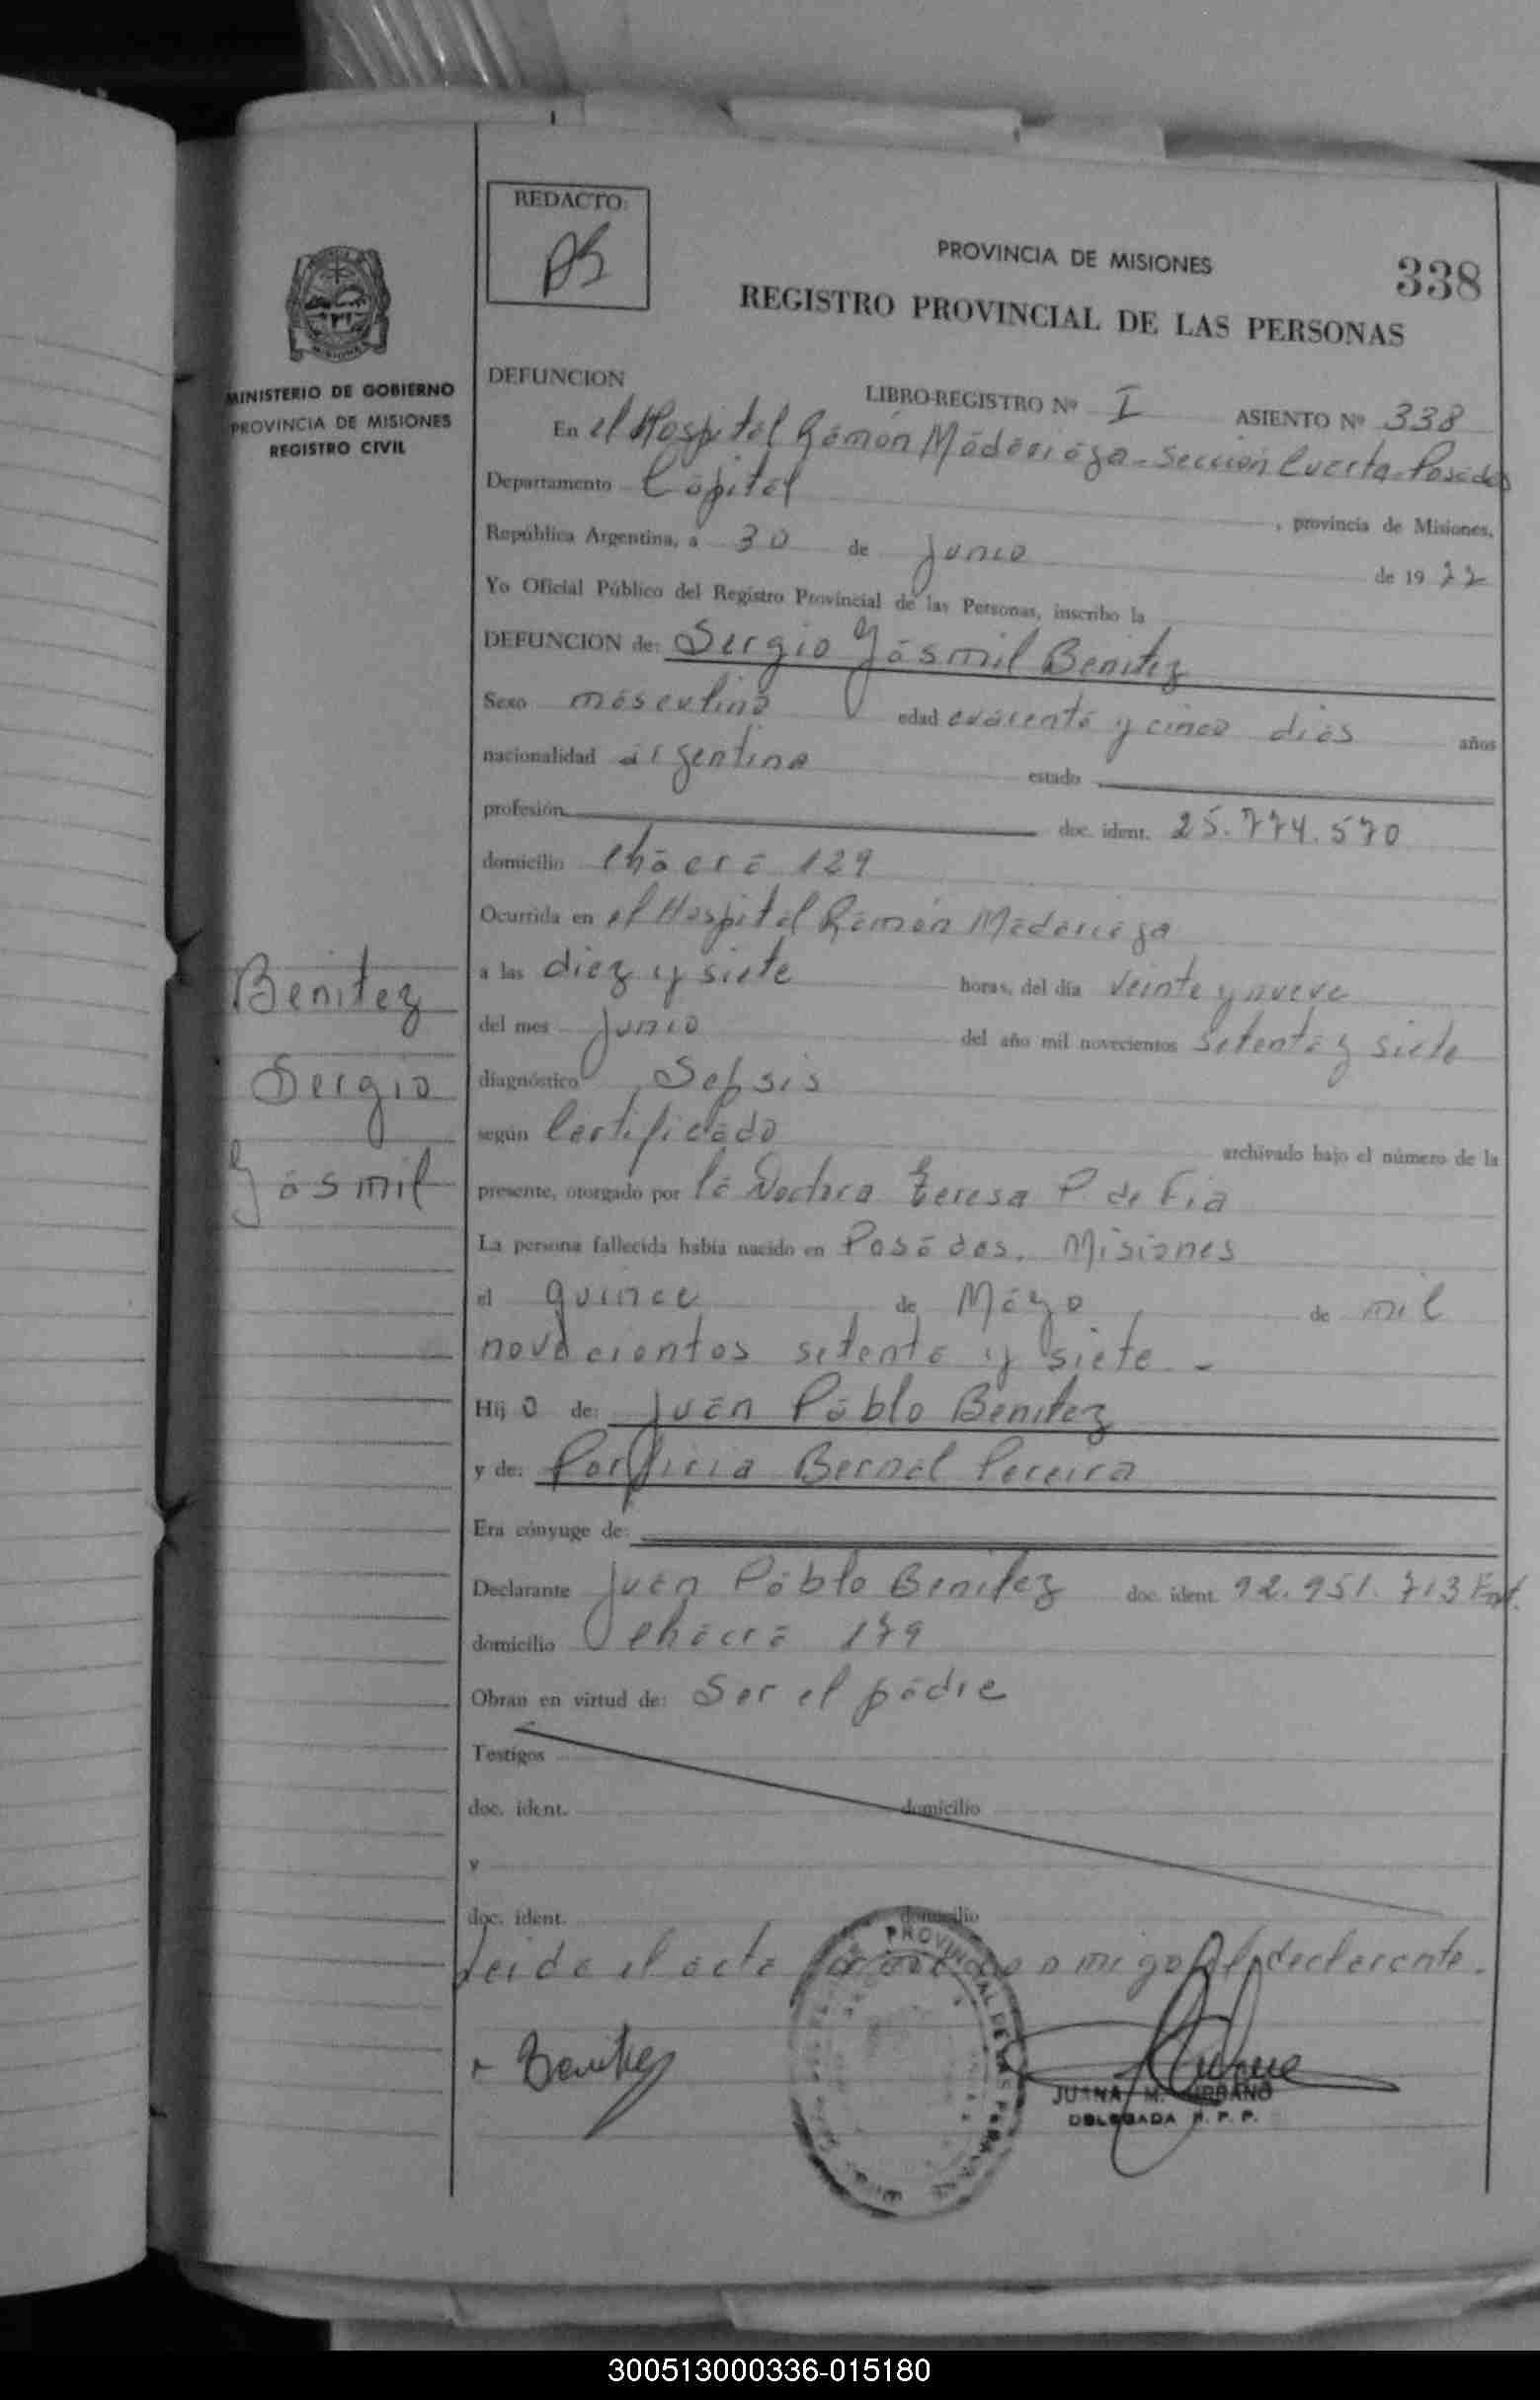 REDACTO:
PROVINCIA DE MISIONES
338
REGISTRO PROVINCIAL DE LAS PERSONAS
MINISTERIO DE GOBIERNO
PROVINCIA DE MISIONES
REGISTRO CIVIL
DEFUNCION LIBRO-REGISTRO Nº I ASIENTO Nº 338
En el Hospital Ramón Madariaga - Sección Cuarta - Posadas
Departamento Capital , provincia de Misiones,
República Argentina, a 30 de junio de 19 77
Yo Oficial Público del Registro Provincial de las Personas, inscribo la
DEFUNCION de: Sergio Yasmil Benitez
Sexo masculino edad cuarenta y cinco dias años
nacionalidad argentina estado
profesión doc. ident. 25.774.570
domicilio Chacra 129
Ocurrida en el Hospital Ramón Madariaga
a las diez y siete horas, del día veinte y nueve
del mes junio del año mil novecientos setenta y siete
diagnóstico Sepsis
según Certificado archivado bajo el número de la
presente, otorgado por la Doctora Teresa P. de Fia
La persona fallecida había nacido en Posadas, Misiones
el quince de Mayo de mil
novecientos setenta y siete -
Hij o de: Juan Pablo Benitez
y de: Porficia Bernal Pereira
Era cónyuge de:
Declarante Juan Pablo Benitez doc. ident. 92.951.713
domicilio Chacra 179
Obran en virtud de: Ser el padre
Testigos
doc. ident. domicilio
y
doc. ident. domicilio
Leida el acta la conmigo el declarante.
Benitez
Sergio
Yasmil
Benitez
JUANA M. URBANO
DELEGADA R. P. P.
300513000336-015180